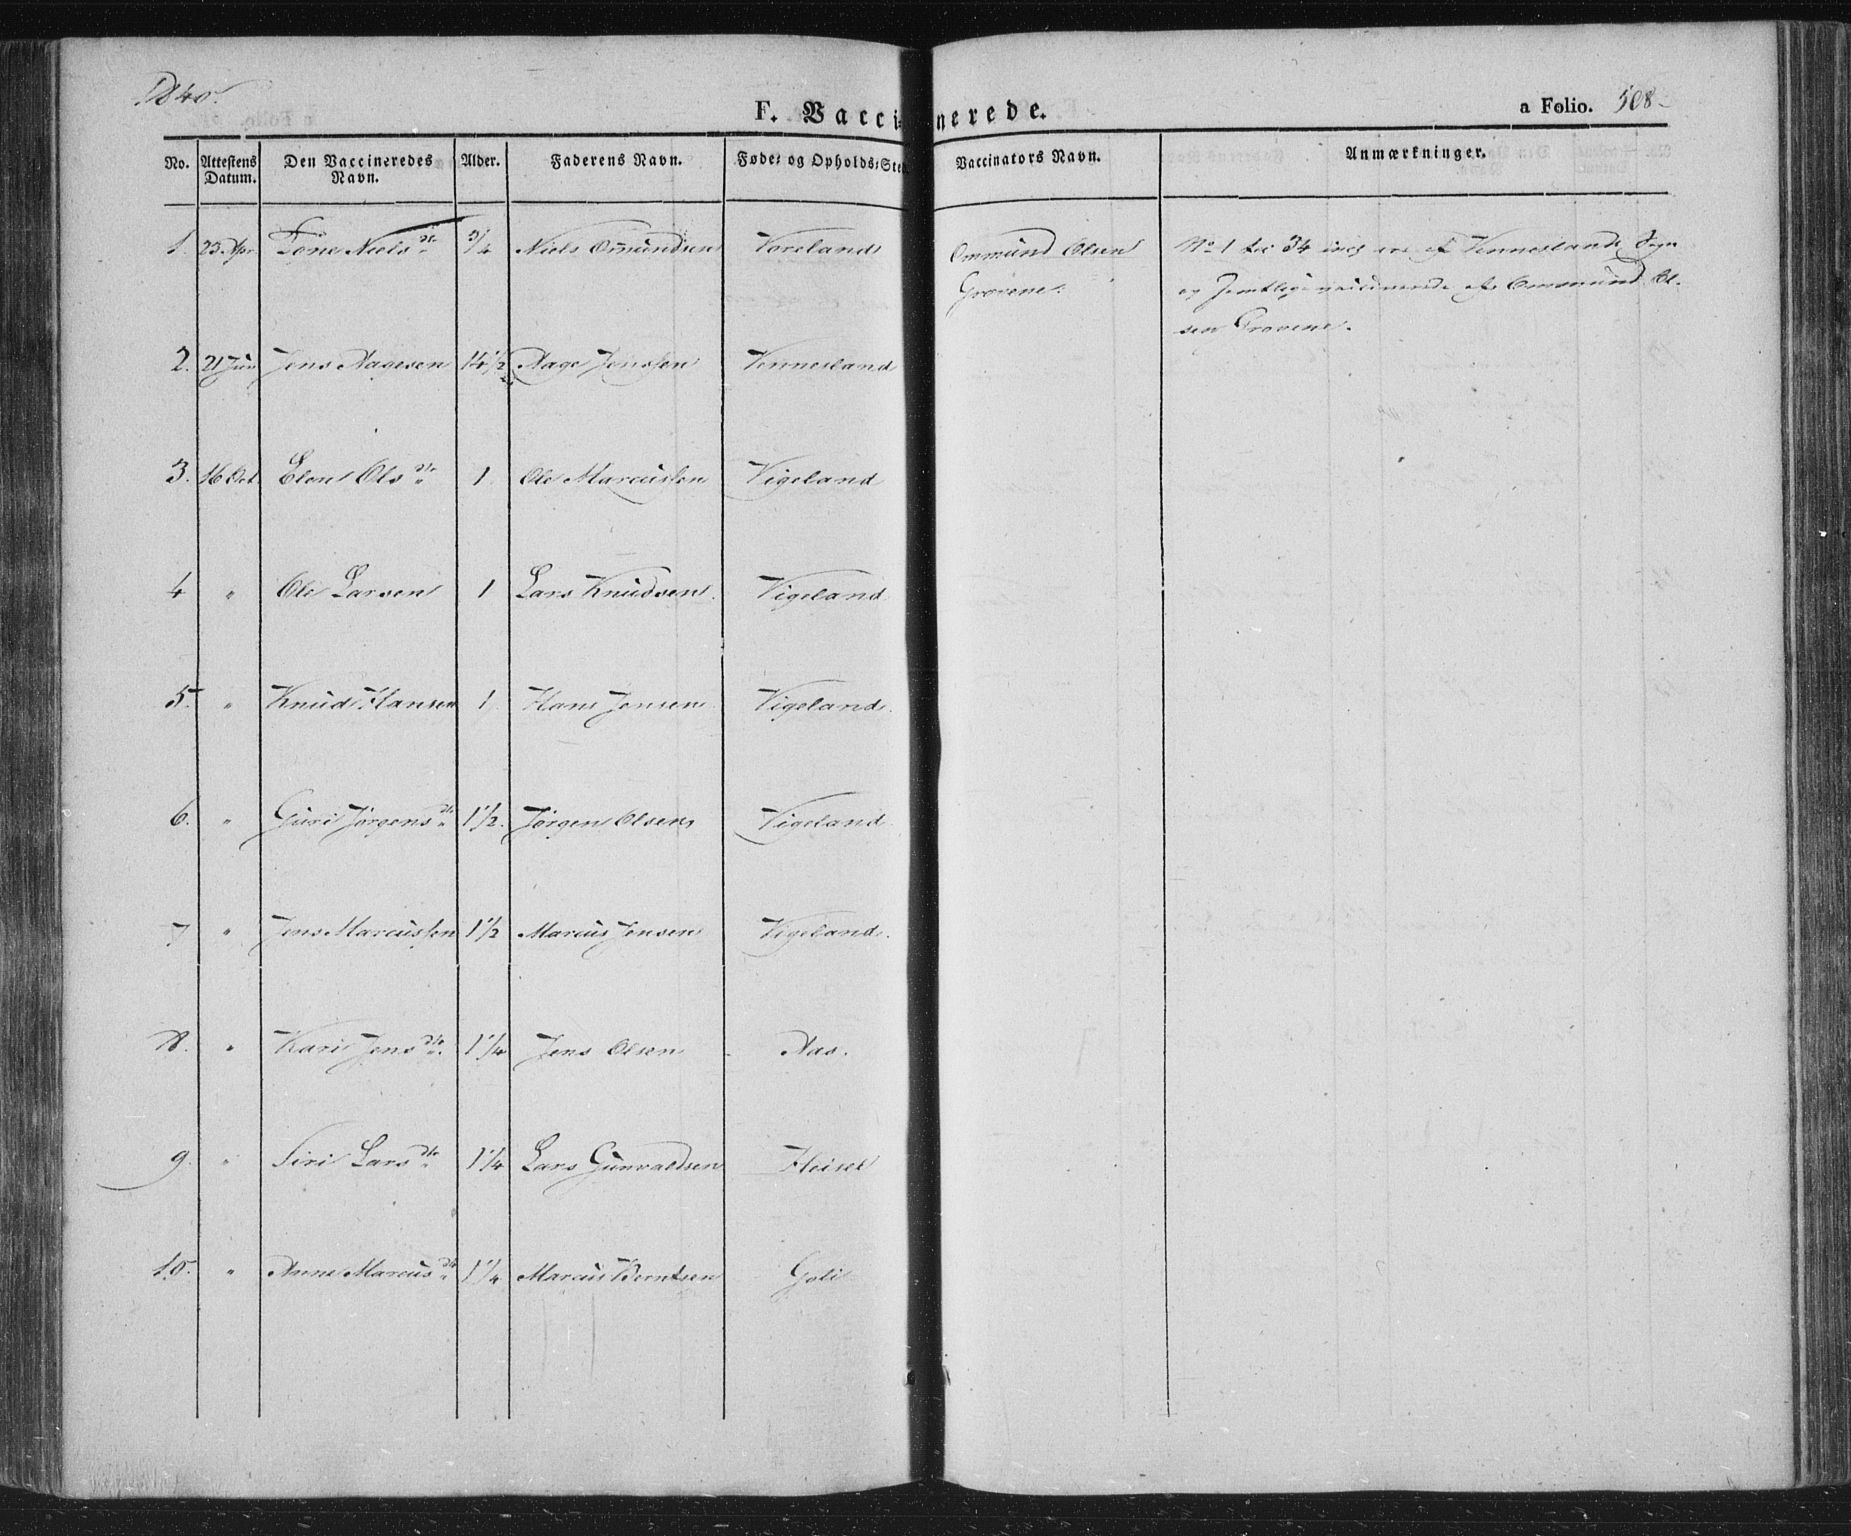 1840.
F. Vaccinerede.
a Folio. 508
No. Attestens Datum. Den Vaccineredes Navn. Alder. Faderens Navn. Føde- og Opholds-Sted Vaccinators Navn. Anmærkninger.
1. 23 Apr. Tone Niels dtr 3/4 Niels Omundsen Voreland Ommund Olsen No 1 til 34 incl ere af Vennesland Sogn
Grovene. og samtlige vaccinerede af Ommund Ol-
sen Grovene.
2. 21 Jun Jens Aagesen 14 1/2 Aage Jenssen Vennesland
3. 16 Oct. Elen Ols dtr 1 Ole Marcussen Vigeland
4 " Ole Larsen 1 Lars Knudsen Vigeland
5. " Knud Hansen 1 Hans Jensen Vigeland.
6. " Guri Jørgens dtr 1 1/2. Jørgen Olsen Vigeland
7 " Jens Marcussen 1 1/2 Marcus Jensen Vigeland.
8. " Kari Jens dtr 1 1/4 Jens Olsen Aas.
9. " Siri Lars dtr 1 1/4 Lars Gunvaldsen Heisel
10. " Anne Marcus dtr 1 1/4 Marcus Berntsen Goli